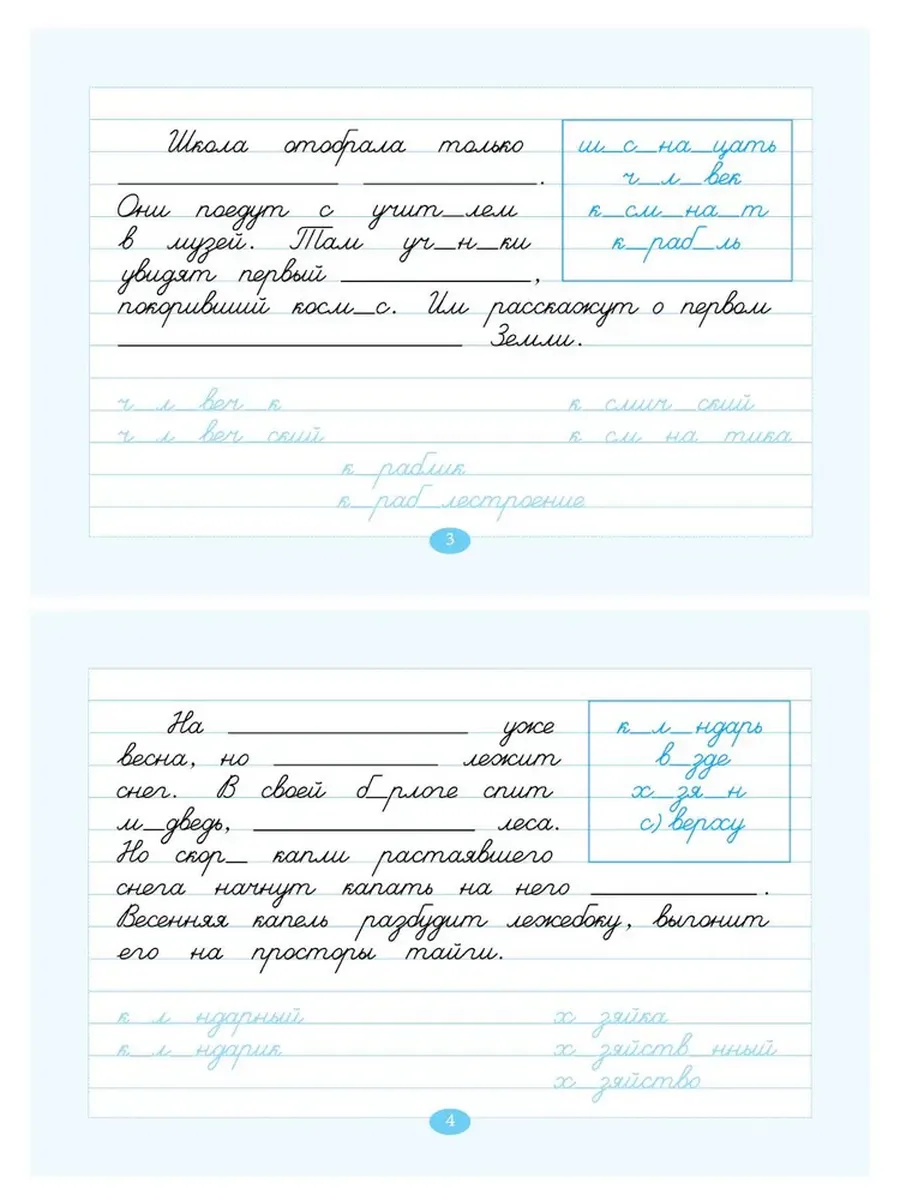 Школа отобрала только
____________ ____________.
Они поедут с учит_лем
в музей. Там уч_н_ки
увидят первый ____________,
покоривший косм_с. Им расскажут о первом
____________ Земли.
ш_с_на_цать
ч_л_век
к_см_на_т
к_раб_ль
ч_л_веч_к
ч_л_веч_ский
к_смич_ский
к_см_на_тика
к_раблик
к_раб_лестроение
3
На ____________ уже
весна, но ____________ лежит
снег. В своей б_рлоге спит
м_дведь, ____________ леса.
Но скор_ капли растаявшего
снега начнут капать на него ____________.
Весенняя капель разбудит лежебоку, выгонит
его на просторы тайги.
к_л_ндарь
в_зде
х_зя_н
с)верху
к_л_ндарный
к_л_ндарик
х_зяйка
х_зяйств_нный
х_зяйство
4